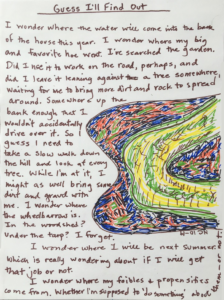 Guess I'll Find Out
I wonder where the water will come into the bank
of the house this year. I wonder where my big
and favorite hoe went. I've searched the garden.
Did I use it to work on the road, perhaps, and
did I leave it leaning against a tree somewhere,
waiting for me to bring more dirt and rock to spread
around. Somewhere up the
bank enough that I
wouldn't accidentally
drive over it. So I
guess I need to
take a slow walk down
the hill and look at every
tree. While I'm at it, I
might as well bring some
dirt and gravel with
me. I wonder where
the wheelbarrow is.
In the woodshed?
Under the tarp? I forget.
I wonder where I will be next summer
which is really wondering about if I will get
that job or not.
I wonder where my foibles & propensities
come from. Whether I'm supposed to "do something" about